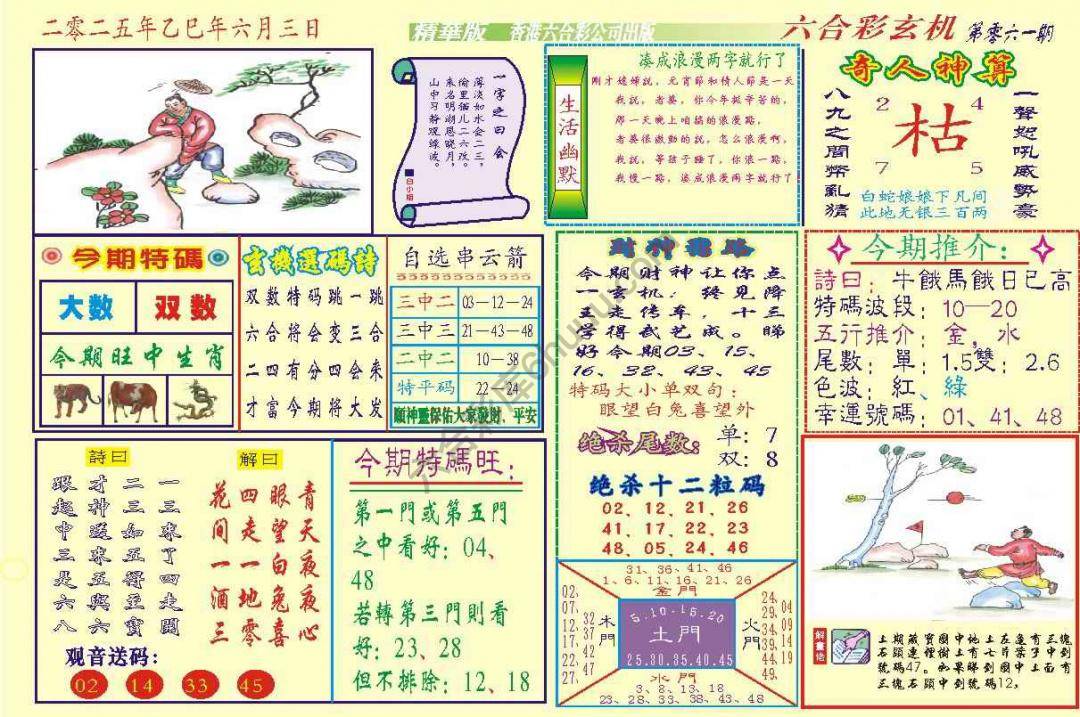 二零二五年乙巳年六月三日
精華版 香港六合彩公司出版
六合彩玄机 第零六一期
一字之曰会
薄淡如水会二三，
偷里循儿二六改。
来名明湖恩晓月，
山中习静观绿波。
白小姐
生活幽默
凑成浪漫两字就行了
刚才媳婦説，元宵節和情人節是一天
我説，老婆，你今年挺辛苦的，
那一天晚上咱搞的浪漫點，
老婆很激動的説，怎么浪漫啊，
我説，等孩子睡了，你浪一點，
我慢一點，凑成浪漫两字就行了
奇人神算
一聲恕吼威勢豪
八九之間幣亂猜
2 4
枯
7 5
白蛇娘娘下凡间
此地无银三百两
今期特碼
大数 双数
今期旺中生肖
玄機選碼詩
双数特码跳一跳
六合将会变三合
二四有分四会来
才富今期将大发
自选串云箭
三中二 03—12—24
三中三 21—43—48
二中二 10—38
特平码 22—24
願神靈保佑大家發財，平安
财神
今期财神让你点
一玄机：终见降
王走传车，十三
学得武艺成。睇
好今期03、15、
16、32、43、45
特码大小单双句：
眼望白兔喜望外
绝杀尾数：
单：7
双：8
绝杀十二粒码
02、12、21、26
41、17、22、23
48、05、24、46
今期推介：
詩曰：牛餓馬餓日已高
特碼波段：10—20
五行推介：金，水
尾數：單：1.5雙：2.6
色波：紅、綠
幸運號碼：01、41、48
詩曰
一三来了四走開
二三如五得至寶
才神送来五與六
跟起中三是六八
解曰
青天夜夜心
眼望白兔喜
四走一地零
花间一酒三
观音送码：
02 14 33 45
今期特碼旺：
第一門或第五門
之中看好：04、
48
若轉第三門則看
好：23、28
但不排除：12、18
31、36、41、46
1、6、11、16、21、26
金門
02、07、12、17、22、27、
32、37、42、47
木門
5.10.15.20
土門
25.30.35.40.45
火門
24、29、34、39、44、49、
04、09、14、19
水門
3、8、13、18
23、28、33、38、43、48
解畫佬
上期藏寶圖中地上左邊有三塊
石頭連裡樹上有七片葉子中到
號碼47。如果睇到圖中上面有
三塊石頭中到號碼12，